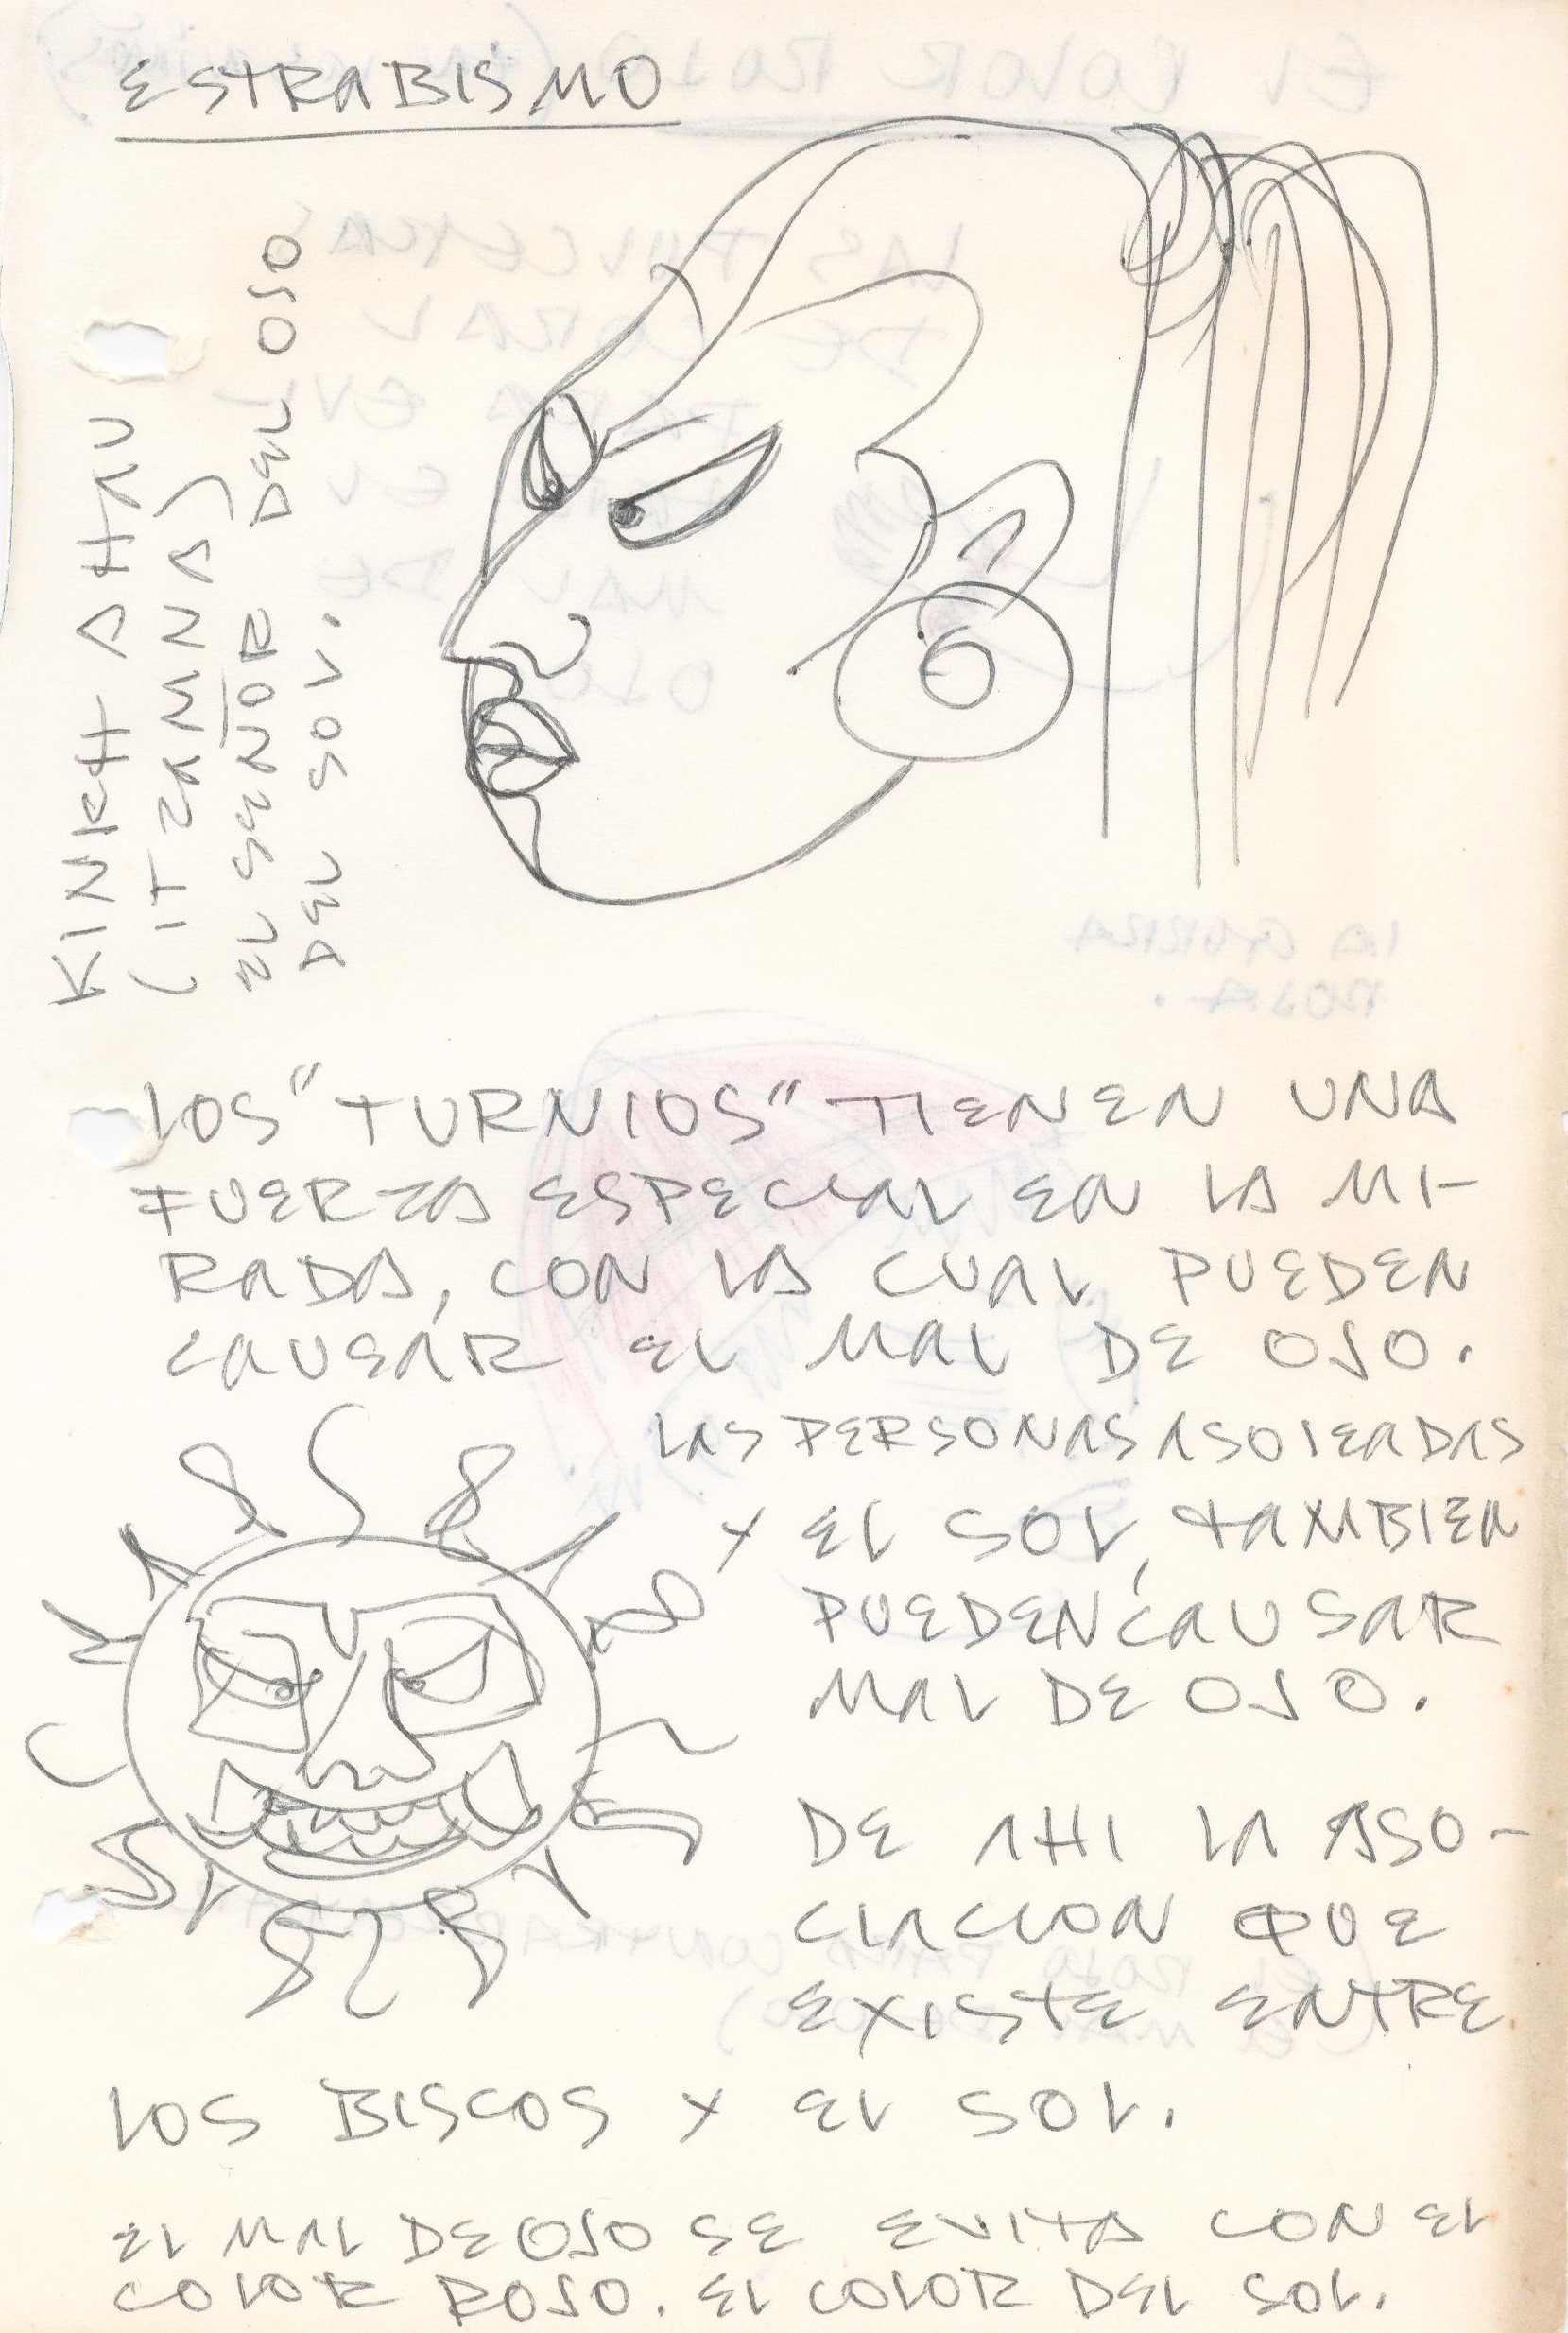 ESTRABISMO
KINKH AHAU
(ITZAMNA)
EL SEÑOR DEL OJO
DEL SOL.
LOS "TURNIOS" TIENEN UNA
FUERZA ESPECIAL EN LA MI-
RADA, CON LA CUAL PUEDEN
CAUSAR EL MAL DE OJO.
LAS PERSONAS ASOLEADAS
Y EL SOL, TAMBIEN
PUEDEN CAUSAR
MAL DE OJO.
DE AHI LA ASO-
CIACION QUE
EXISTE ENTRE
LOS BISCOS Y EL SOL.
EL MAL DE OJO SE EVITA CON EL
COLOR ROJO. EL COLOR DEL SOL.